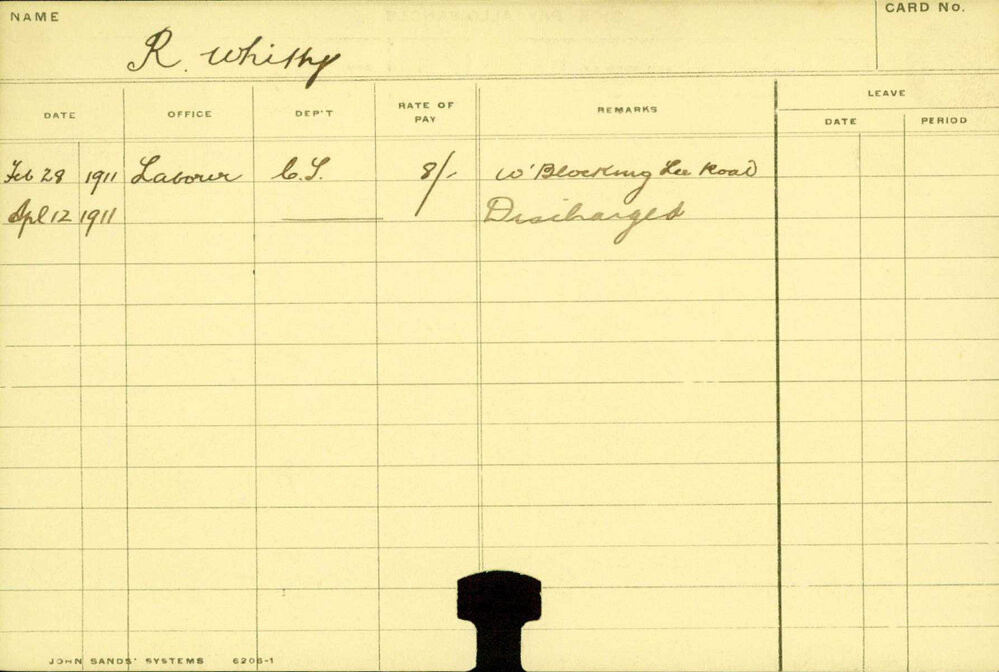 NAME
CARD No.
R. Whitby
DATE OFFICE DEP'T RATE OF PAY REMARKS LEAVE
DATE PERIOD
Feb 28 1911 Labourer C.S. 8/- W'Blocking Lee Road
Apl 12 1911 Discharged
JOHN SANDS' SYSTEMS 6206-1